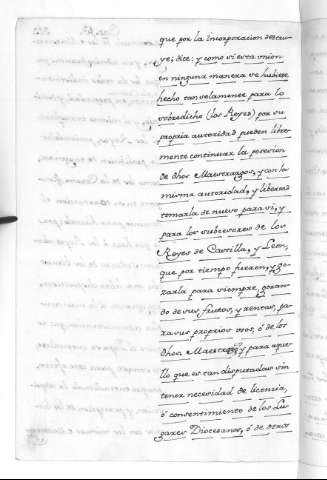 que por la Incorporacion destru
ye; dice: y como si esta union
en ninguna manera se hubiese
hecho tan solamente para lo
sobredicho (los Reyes) por su
propria autoridad pueden liber
mente continuar la posesion
de dhos Maestrazgos, y con la
misma autoridad, y libertad
tomarla de nuevo para si, y
para los subcesores de los
Reyes de Castilla, y Leon,
que por tiempo fueren, y go
zarla para siempre, gozan
do de sus frutos, y rentas, pa
ra sus proprios usos, ó de los
dhos Maestrazgos y para aque
llo que es tan disputado sin
tener necesidad de licencia,
ó consentimiento de los Lu
gares Diocesanos, ó de otros